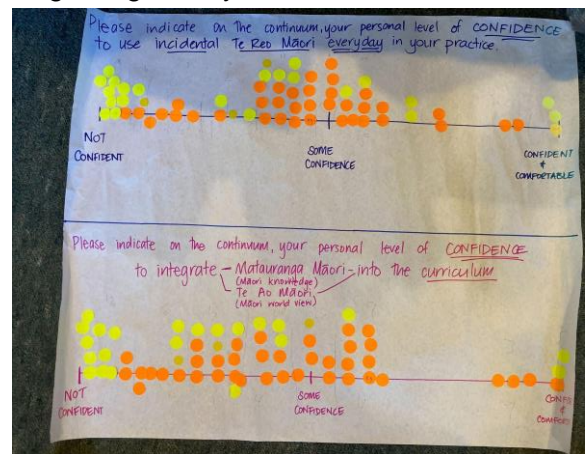 Please indicate on the continuum, your personal level of CONFIDENCE
to use incidental Te Reo Māori everyday in your practice.
NOT
CONFIDENT
SOME
CONFIDENCE
CONFIDENT
+
COMFORTABLE
Please indicate on the continuum, your personal level of CONFIDENCE
to integrate - Matauranga Māori - into the curriculum
(Māori knowledge)
Te Ao Māori
(Māori world view)
NOT
CONFIDENT
SOME
CONFIDENCE